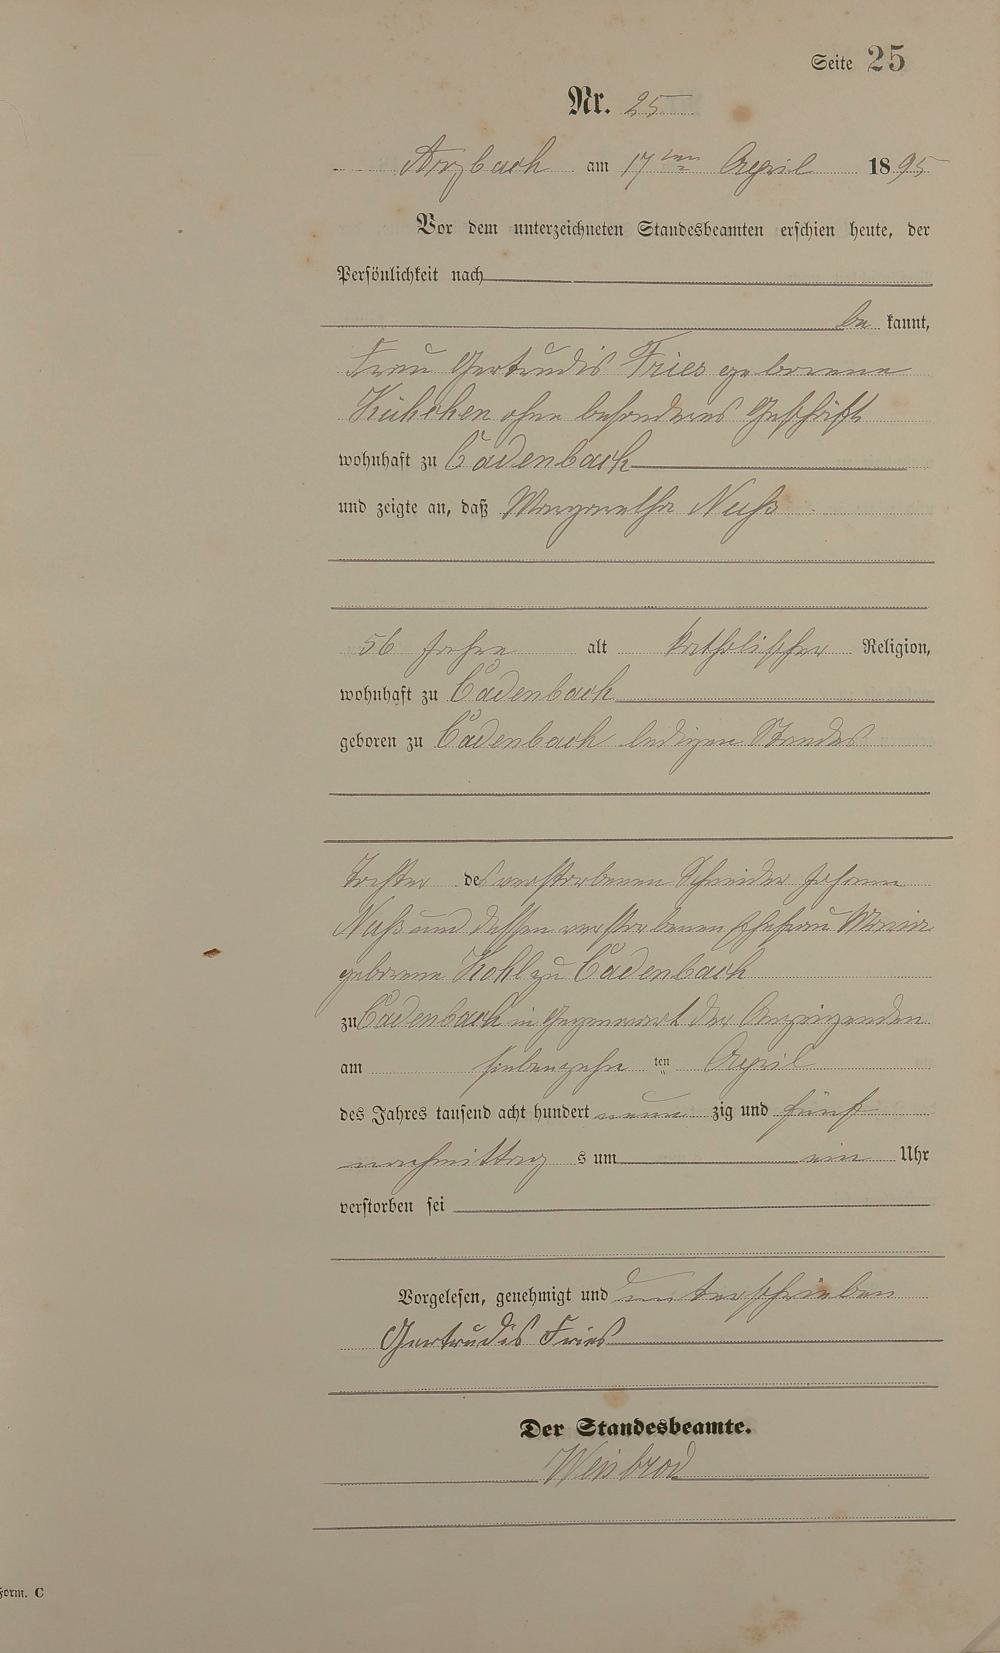 Seite 25
Nr. 25
Arzbach am 17ten April 1895
Vor dem unterzeichneten Standesbeamten erschien heute, der
Persönlichkeit nach
be kannt,
Frau Gertrudis Fries geborene
ohne besonderes Geschäft
wohnhaft zu Cadenbach
und zeigte an, daß Margaretha Nuß
56 Jahre alt katholischer Religion,
wohnhaft zu Cadenbach
geboren zu Cadenbach ledigen Standes
Tochter des verstorbenen Schneider Johann
Nuß und dessen verstorbenen Ehefrau Maria
geborene Kohl zu Cadenbach
zu Cadenbach in Gegenwart der Anzeigenden
am siebenzehn ten April
des Jahres tausend acht hundert neun zig und fünf
nachmittag s um ein Uhr
verstorben sei
Vorgelesen, genehmigt und unterschrieben
Gertrudis Fries
Der Standesbeamte.
Weisbrod
Form. C